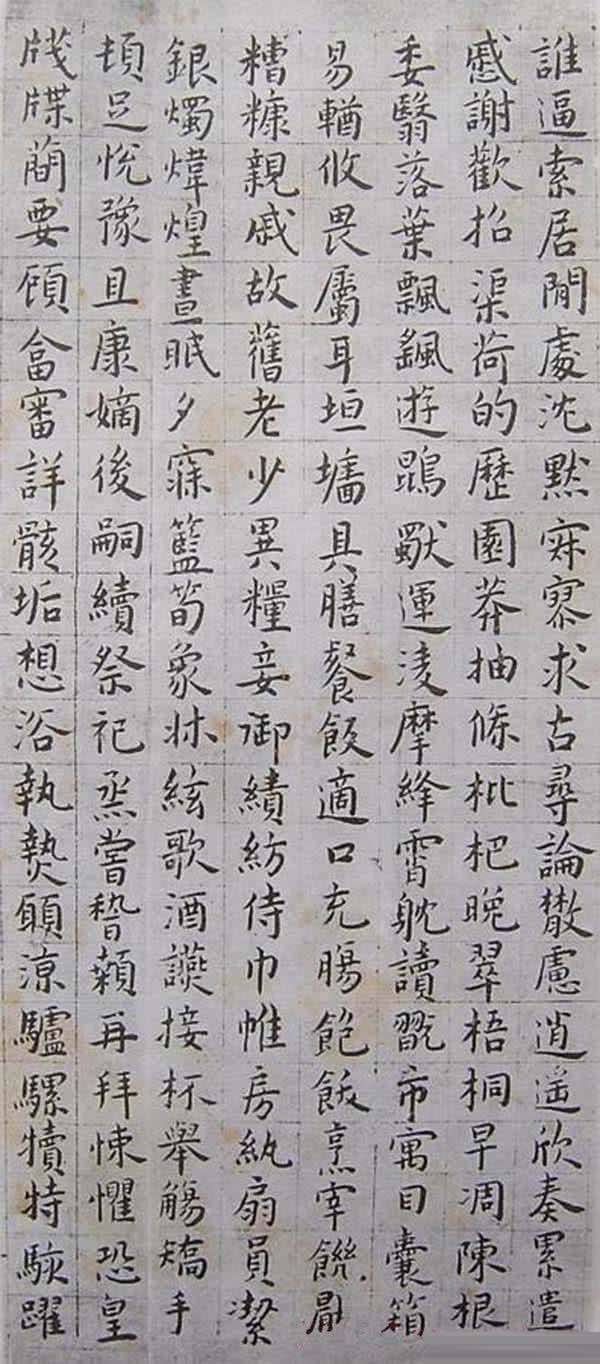 誰逼索居閒處沈默寂寥求古尋論散慮逍遙欣奏累遣
慼謝歡招渠荷的歷園莽抽條枇杷晚翠梧桐早凋陳根
委翳落葉飄颻遊鵾獸運淩摩絳霄躭讀翫市寓目囊箱
易輶攸畏屬耳垣墻具膳餐飯適口充腸飽飫烹宰饑厭
糟糠親戚故舊老少異糧妾御績紡侍巾帷房紈扇員潔
銀燭煒煌晝眠夕寐籃筍象牀絃歌酒讌接杯舉觴矯手
頓足悅豫且康嫡後嗣續祭祀烝嘗稽顙再拜悚懼恐皇
牋牒簡要顧畣審詳骸垢想浴執熱願涼驢騾犢特駭躍